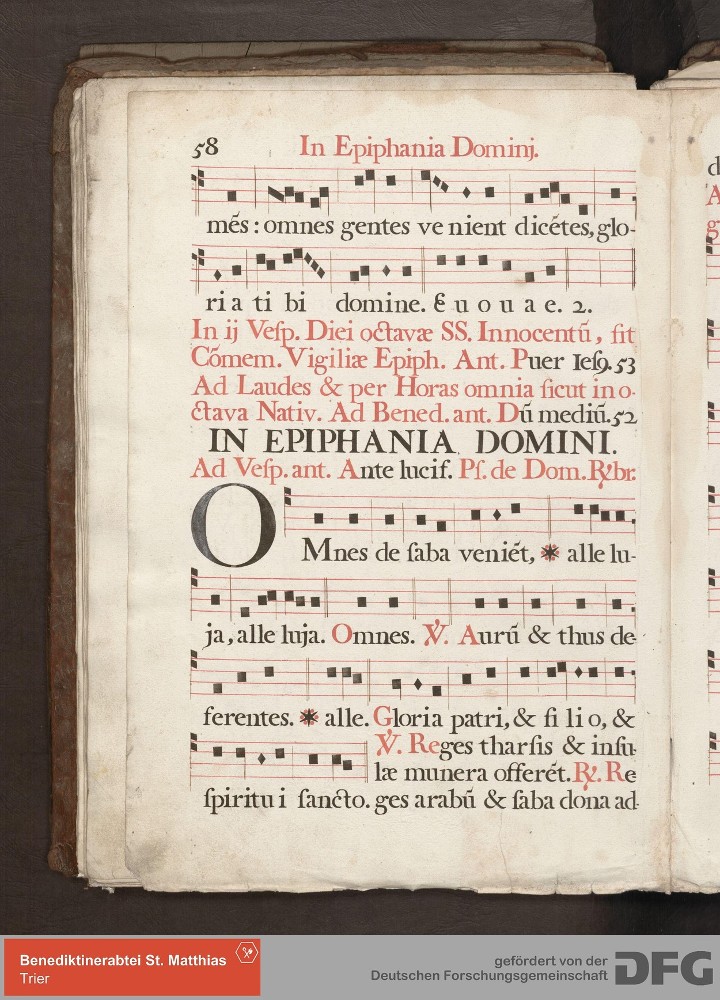 58 In Epiphania Dominj.
més : omnes gentes ve nient dicétes, glo-
ri a ti bi domine. E u o u a e. 2.
In ij Vesp. Diei octavæ SS. Innocentū, fit
Cōmem. Vigiliæ Epiph. Ant. Puer Ies9. 53
Ad Laudes & per Horas omnia sicut in o-
ctava Nativ. Ad Bened. ant. Dū mediū. 52
IN EPIPHANIA DOMINI.
Ad Vesp. ant. Ante lucif. Ps. de Dom. ℟br.
OMnes de saba veniét, * alle lu-
ja, alle luja. Omnes. ℣. Aurū & thus de-
ferentes. * alle. Gloria patri, & fi li o, &
℣. Reges tharsis & insu
læ munera offerét. ℟. Re
spiritu i sancto. ges arabū & saba dona ad-
d
A
g
Benediktinerabtei St. Matthias
Trier
gefördert von der
Deutschen Forschungsgemeinschaft
DFG